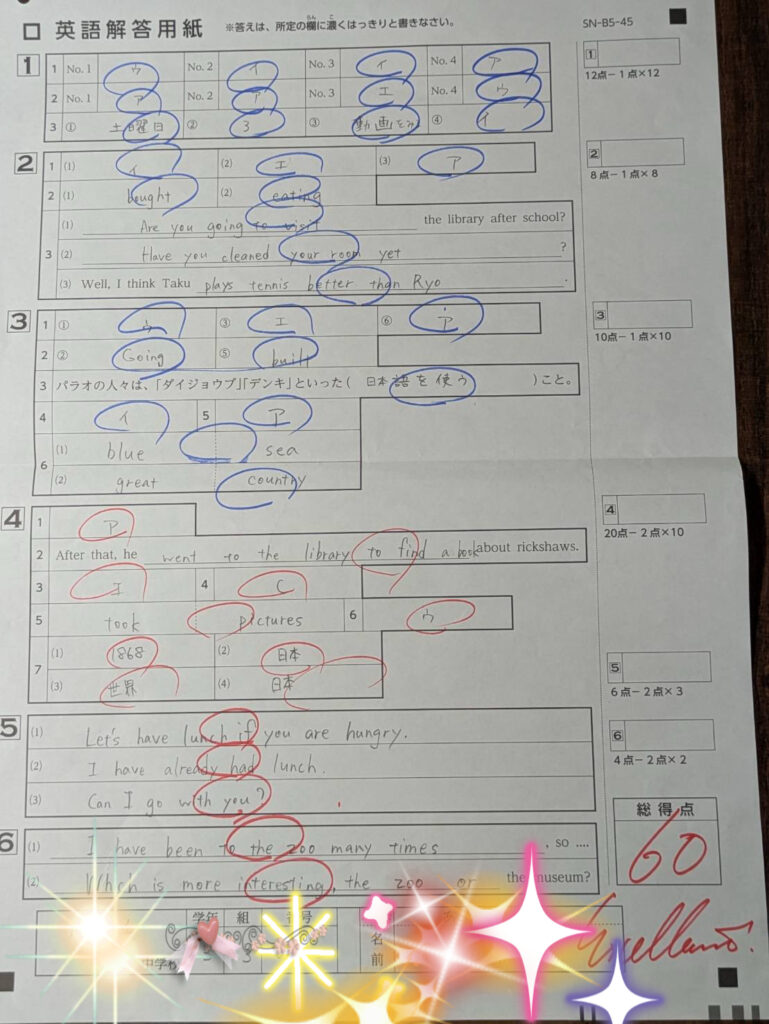 □ 英語解答用紙 ※答えは、所定の欄に濃くはっきりと書きなさい。 SN-B5-45
1
1 No. 1 ウ No. 2 イ No. 3 イ No. 4 ア
2 No. 1 ア No. 2 ア No. 3 エ No. 4 ウ
3 ① 土曜日 ② 3 ③ 動画をみ ④ イ
1
12点−1点×12
2
1 (1) イ (2) エ (3) ア
2 (1) bought (2) eating
3 (1) Are you going to visit the library after school?
(2) Have you cleaned your room yet ?
(3) Well, I think Taku plays tennis better than Ryo .
2
8点−1点×8
3
1 ① ウ ③ エ ⑥ ア
2 ② Going ⑤ built
3 パラオの人々は、「ダイジョウブ」「デンキ」といった( 日本語を使う )こと。
4 イ 5 ア
6 (1) blue sea
(2) great country
3
10点−1点×10
4
1 ア
2 After that, he went to the library to find a book about rickshaws.
3 エ 4 C
5 took pictures 6 ウ
7 (1) 1868 (2) 日本
(3) 世界 (4) 日本
4
20点−2点×10
5
(1) Let's have lunch if you are hungry.
(2) I have already had lunch.
(3) Can I go with you?
5
6点−2点×3
6
(1) I have been to the zoo many times , so ....
(2) Which is more interesting, the zoo or the museum?
6
4点−2点×2
総得点
60
Excellent!
学年 組 番号
中学校 3 3 名前